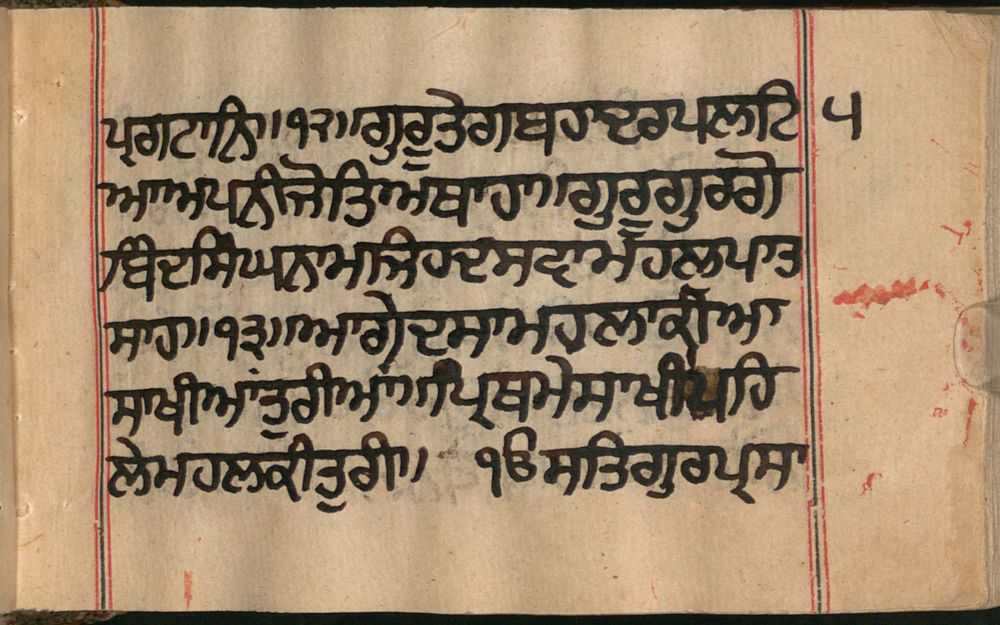 ਪ੍ਰਗਟਾਨਿ॥੧੨॥ਗੁਰੂਤੇਗਬਹਾਦਰਪਲਟਿ ੫
ਆਅਪਨੀਜੋਤਿਅੰਬਾਹ॥ਗੁਰੂਗੁਰਗੋ
ਬਿੰਦਸਿੰਘਨਾਮਜਿਹਦਸਵਾਮੰਹਲਪਾਤ
ਸਾਹ॥੧੩॥ਆਗੇਦਸਾਮਹਲਾਕੀਆ
ਸਾਖੀਆਂਤੁਰੀਆਂ॥ਪ੍ਰਥਮੇਸਾਖੀਪਹਿ
ਲੇਮਹਲਕੀਤੁਰੀ॥ ੴਸਤਿਗੁਰਪ੍ਰਸਾ